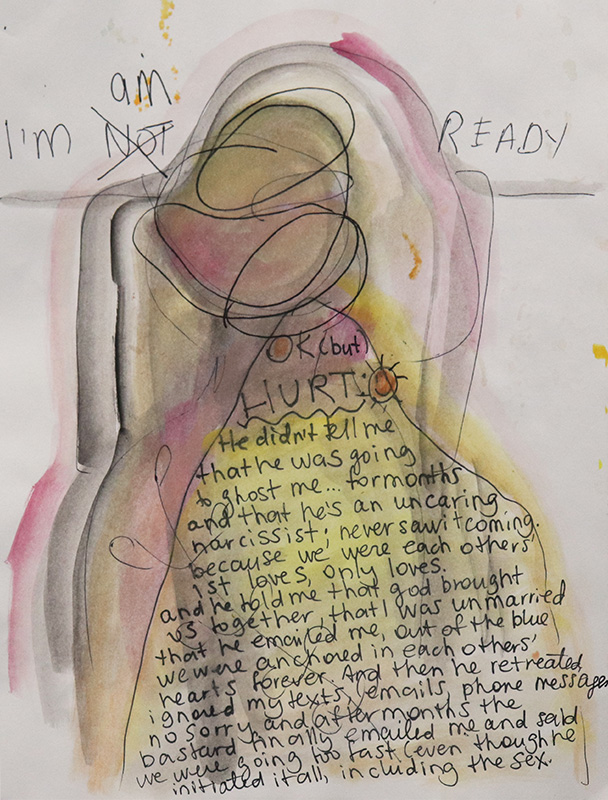 am
I'm NOT READY
OK (but)
HURT:
He didn't tell me
that he was going
to ghost me... for months
and that he's an uncaring
narcissist; never saw it coming.
because we were each others'
1st loves, only loves.
and he told me that god brought
us together, that I was unmarried
that he emailed me, out of the blue
we were anchored in each others'
hearts forever. And then he retreated,
ignored my texts, emails, phone messages
no sorry and after months the
bastard finally emailed me and said
we were going too fast (even though he
initiated it all, including the sex.